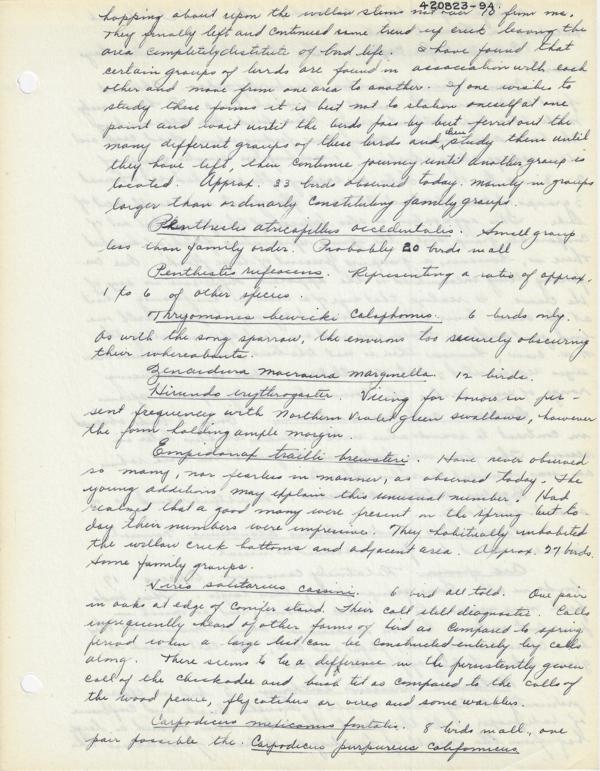 420823-94
hopping about upon the willow stems not over 15' from me.
They finally left and continued same trend up creek leaving the
area completely destitute of bird life. I have found that
certain groups of birds are found in association with each
other and move from one area to another. If one wishes to
study these forms it is best not to station oneself at one
point and wait until the birds pass by but ferret out the
many different groups of these birds and then study them until
they have left, then continue journey until another group is
located. Approx. 33 birds observed today. Mainly in groups
larger than ordinarily constituting family groups.
Penthestes atricapillus occidentalis. Small group
less than family order. Probably 20 birds in all
Penthestes rufescens. Representing a ratio of approx.
1 to 6 of other species.
Thryomanes bewicki calaphonus. 6 birds only.
As with the song sparrow, the environs too securely obscuring
their whereabouts.
Zenaidura macroura marginella. 12 birds.
Hirundo erythrogaster. Vieing for honors in pre-
sent frequency with Northern Violet green swallows, however
the form holding ample margin.
Empidonax trailli brewsteri. Have never observed
so many, nor fearless in manner, as observed today. The
young additions may explain this unusual number. Had
realized that a good many were present in the spring but to-
day their numbers were impressive. They habitually inhabited
the willow creek bottoms and adjacent area. Approx. 27 birds.
Some family groups.
Vireo solitarius cassini. 6 bird all told. One pair
in oaks at edge of conifer stand. Their call still diagnostic. Calls
infrequently heard of other forms of bird as compared to spring
period when a large list can be constructed entirely by calls
along. There seems to be a difference in the persistently given
call of the chickadee and bush tit as compared to the calls of
the wood pewee, flycatchers or vireo and some warbles.
Carpodicus mexicanus fontalis. 8 birds in all, one
pair possible the Carpodicus purpureus californicus